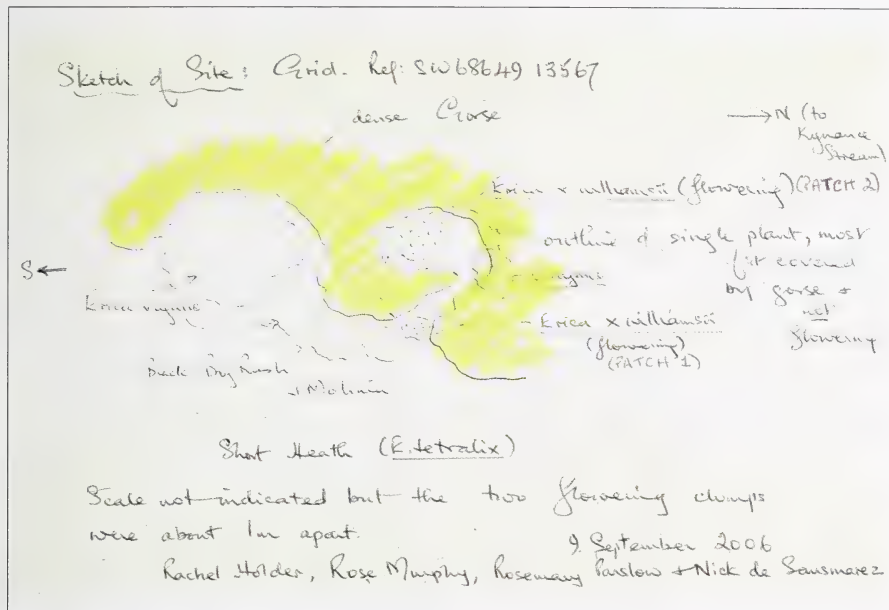 Sketch of Site: Grid. Ref: SW68649 13567
dense Gorse
→ N (to
Kynance
Stream)
Erica x williamsii (flowering) (PATCH 2)
outline of single plant, most
of it covered
by gorse +
not
flowering
S ←
vagans
Erica vagans
Erica x williamsii
(flowering)
(PATCH 1)
Black Bog Rush
+ Molinia
Short Heath (E. tetralix)
Scale not indicated but the two flowering clumps
were about 1m apart.
9 September 2006
Rachel Holder, Rose Murphy, Rosemary Parslow + Nick de Sausmarez